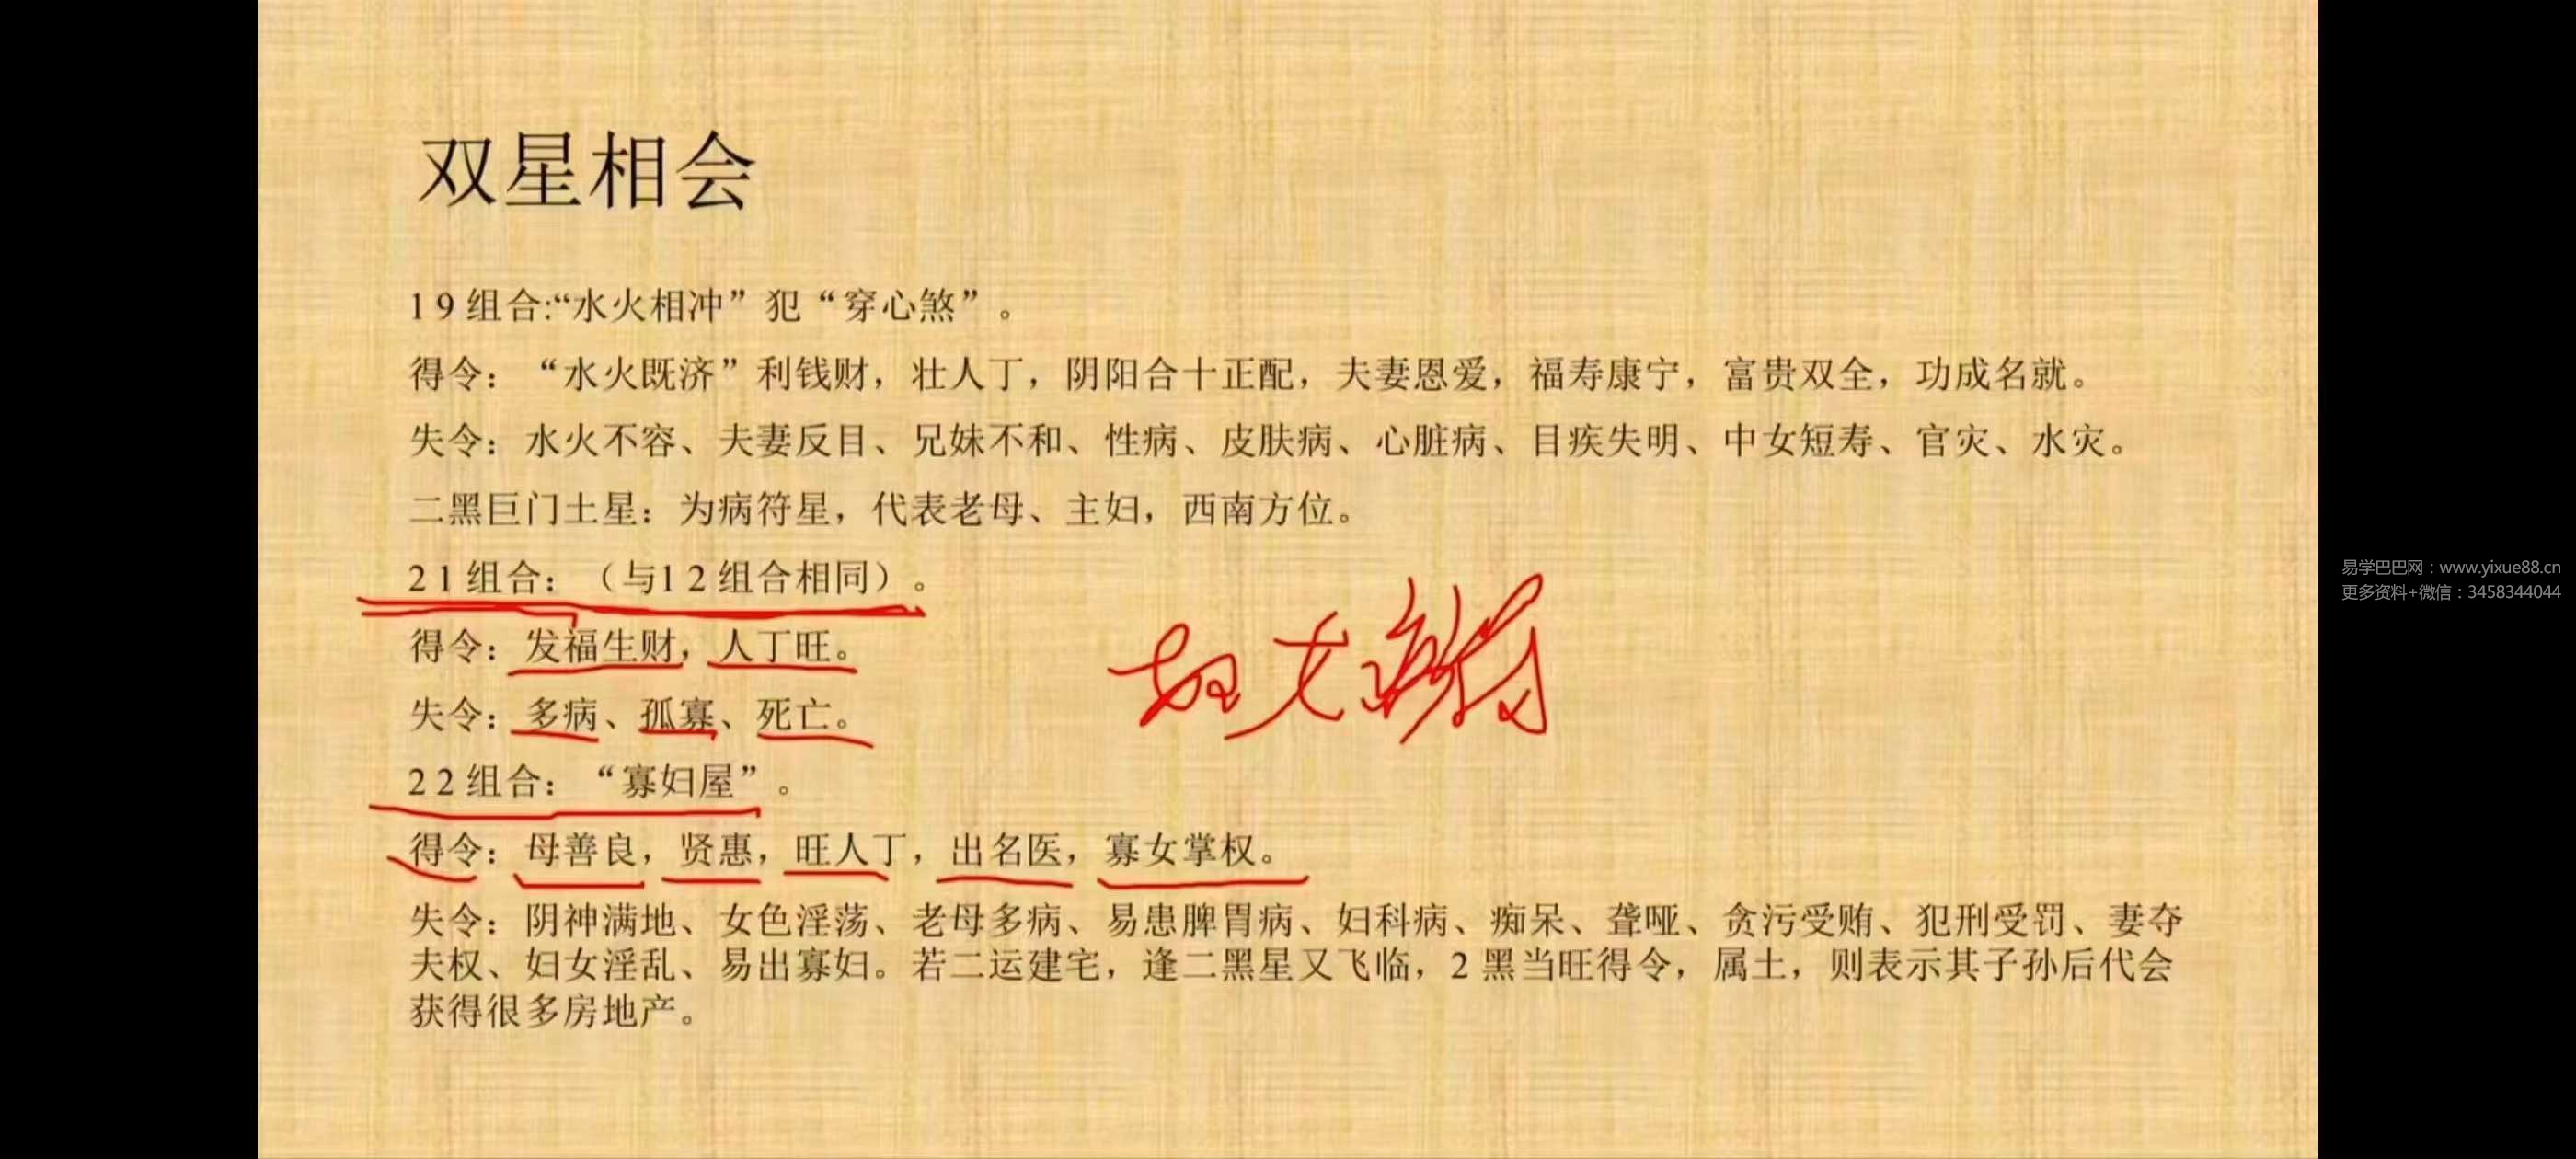 双星相会
19组合:“水火相冲”犯“穿心煞”。
得令：“水火既济”利钱财，壮人丁，阴阳合十正配，夫妻恩爱，福寿康宁，富贵双全，功成名就。
失令：水火不容、夫妻反目、兄妹不和、性病、皮肤病、心脏病、目疾失明、中女短寿、官灾、水灾。
二黑巨门土星：为病符星，代表老母、主妇，西南方位。
21组合：（与12组合相同）。
得令：发福生财，人丁旺。
失令：多病、孤寡、死亡。
22组合：“寡妇屋”。
得令：母善良，贤惠，旺人丁，出名医，寡女掌权。
失令：阴神满地、女色淫荡、老母多病、易患脾胃病、妇科病、痴呆、聋哑、贪污受贿、犯刑受罚、妻夺
夫权、妇女淫乱、易出寡妇。若二运建宅，逢二黑星又飞临，2黑当旺得令，属土，则表示其子孙后代会
获得很多房地产。
易学巴巴网：www.yixue88.cn
更多资料+微信：3458344044